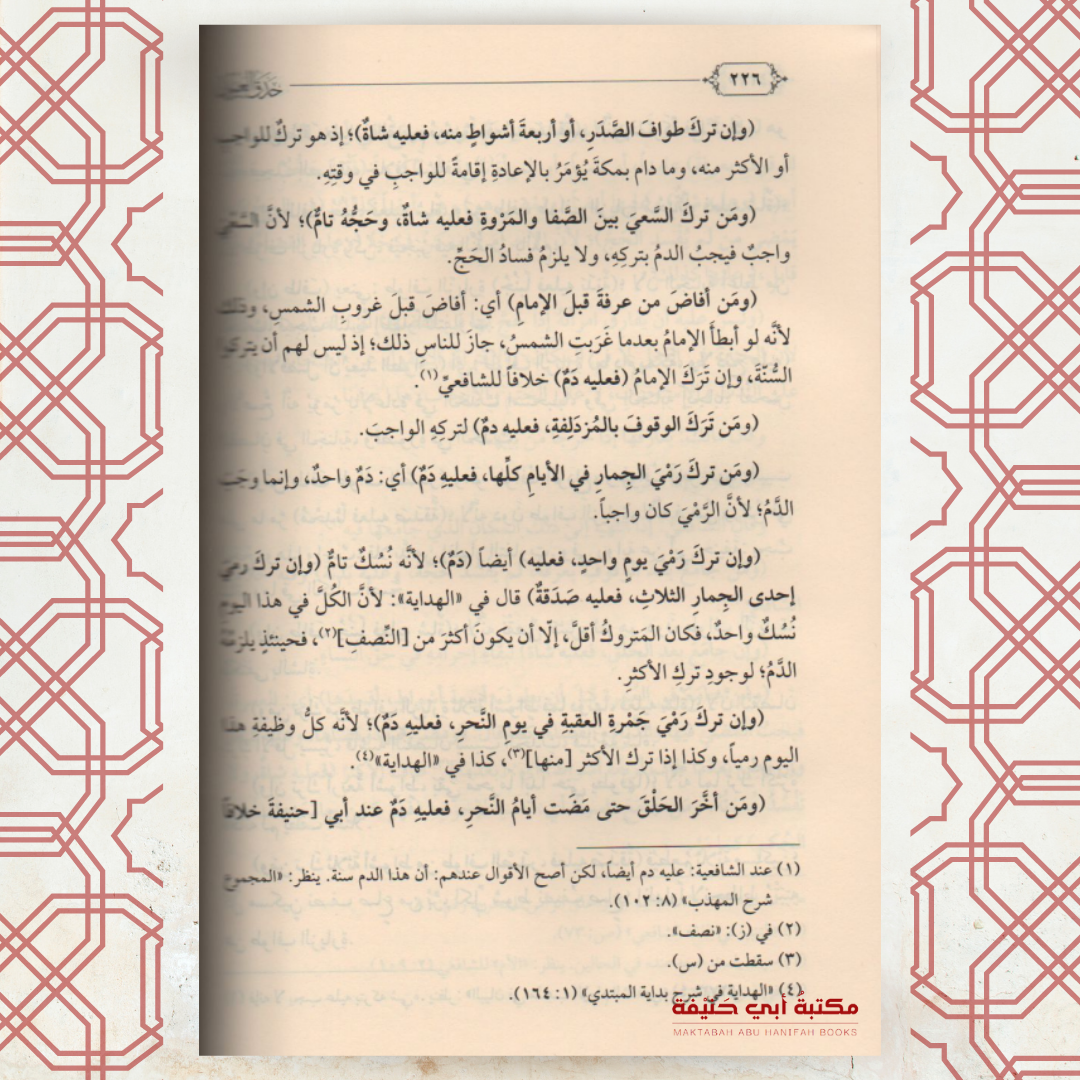 ٢٢٦
(وإن تركَ طوافَ الصَّدَرِ، أو أربعةَ أشواطٍ منه، فعليه شاةٌ)؛ إذ هو تركٌ للواجبِ
أو الأكثر منه، وما دام بمكةَ يُؤمَرُ بالإعادةِ إقامةً للواجبِ في وقتِهِ.
(ومَن تركَ السَّعيَ بينَ الصَّفا والمَرْوةِ فعليه شاةٌ، وحَجُّهُ تامٌّ)؛ لأنَّ السَّعْيَ
واجبٌ فيجبُ الدمُ بتركِهِ، ولا يلزمُ فسادُ الحَجِّ.
(ومَن أفاضَ من عرفةَ قبلَ الإمامِ) أي: أفاضَ قبلَ غروبِ الشمسِ، وذلك
لأنَّه لو أبطأَ الإمامُ بعدما غَرَبت الشمسُ، جازَ للناسِ ذلك؛ إذ ليس لهم أن يتركوا
السُّنَّةَ، وإن تَرَكَ الإمامُ (فعليه دَمٌ) خلافاً للشافعيِّ(١).
(ومَن تَرَكَ الوقوفَ بالمُزدَلِفةِ، فعليه دمٌ) لتركِهِ الواجبَ.
(ومَن تركَ رَمْيَ الجِمارِ في الأيامِ كلِّها، فعليهِ دَمٌ) أي: دَمٌ واحدٌ، وإنما وجبَ
الدَّمُ؛ لأنَّ الرَّمْيَ كان واجباً.
(وإن تركَ رَمْيَ يومٍ واحدٍ، فعليه) أيضاً (دَمٌ)؛ لأنَّه نُسُكٌ تامٌّ (وإن تركَ رميَ
إحدى الجِمارِ الثلاثِ، فعليه صَدَقةٌ) قال في «الهداية»: لأنَّ الكُلَّ في هذا اليومِ
نُسُكٌ واحدٌ، فكان المَتروكُ أقلَّ، إلّا أن يكونَ أكثرَ من [النِّصفِ](٢)، فحينئذٍ يلزمُهُ
الدَّمُ؛ لوجودِ تركِ الأكثرِ.
(وإن تركَ رَمْيَ جَمْرةِ العقبةِ في يومِ النَّحرِ، فعليهِ دَمٌ)؛ لأنَّه كلُّ وظيفةِ هذا
اليوم رمياً، وكذا إذا ترك الأكثر [منها](٣)، كذا في «الهداية»(٤).
(ومَن أخَّرَ الحَلْقَ حتى مَضَت أيامُ النَّحرِ، فعليهِ دَمٌ عند أبي [حنيفةَ خلافاً
(١) عند الشافعية: عليه دم أيضاً، لكن أصح الأقوال عندهم: أن هذا الدم سنة. ينظر: «المجموع
شرح المهذب» (٨: ١٠٢).
(٢) في (ز): «نصف».
(٣) سقطت من (س).
(٤) «الهداية في شرح بداية المبتدي» (١: ١٦٤).
مكتبة أبي حنيفة
MAKTABAH ABU HANIFAH BOOKS